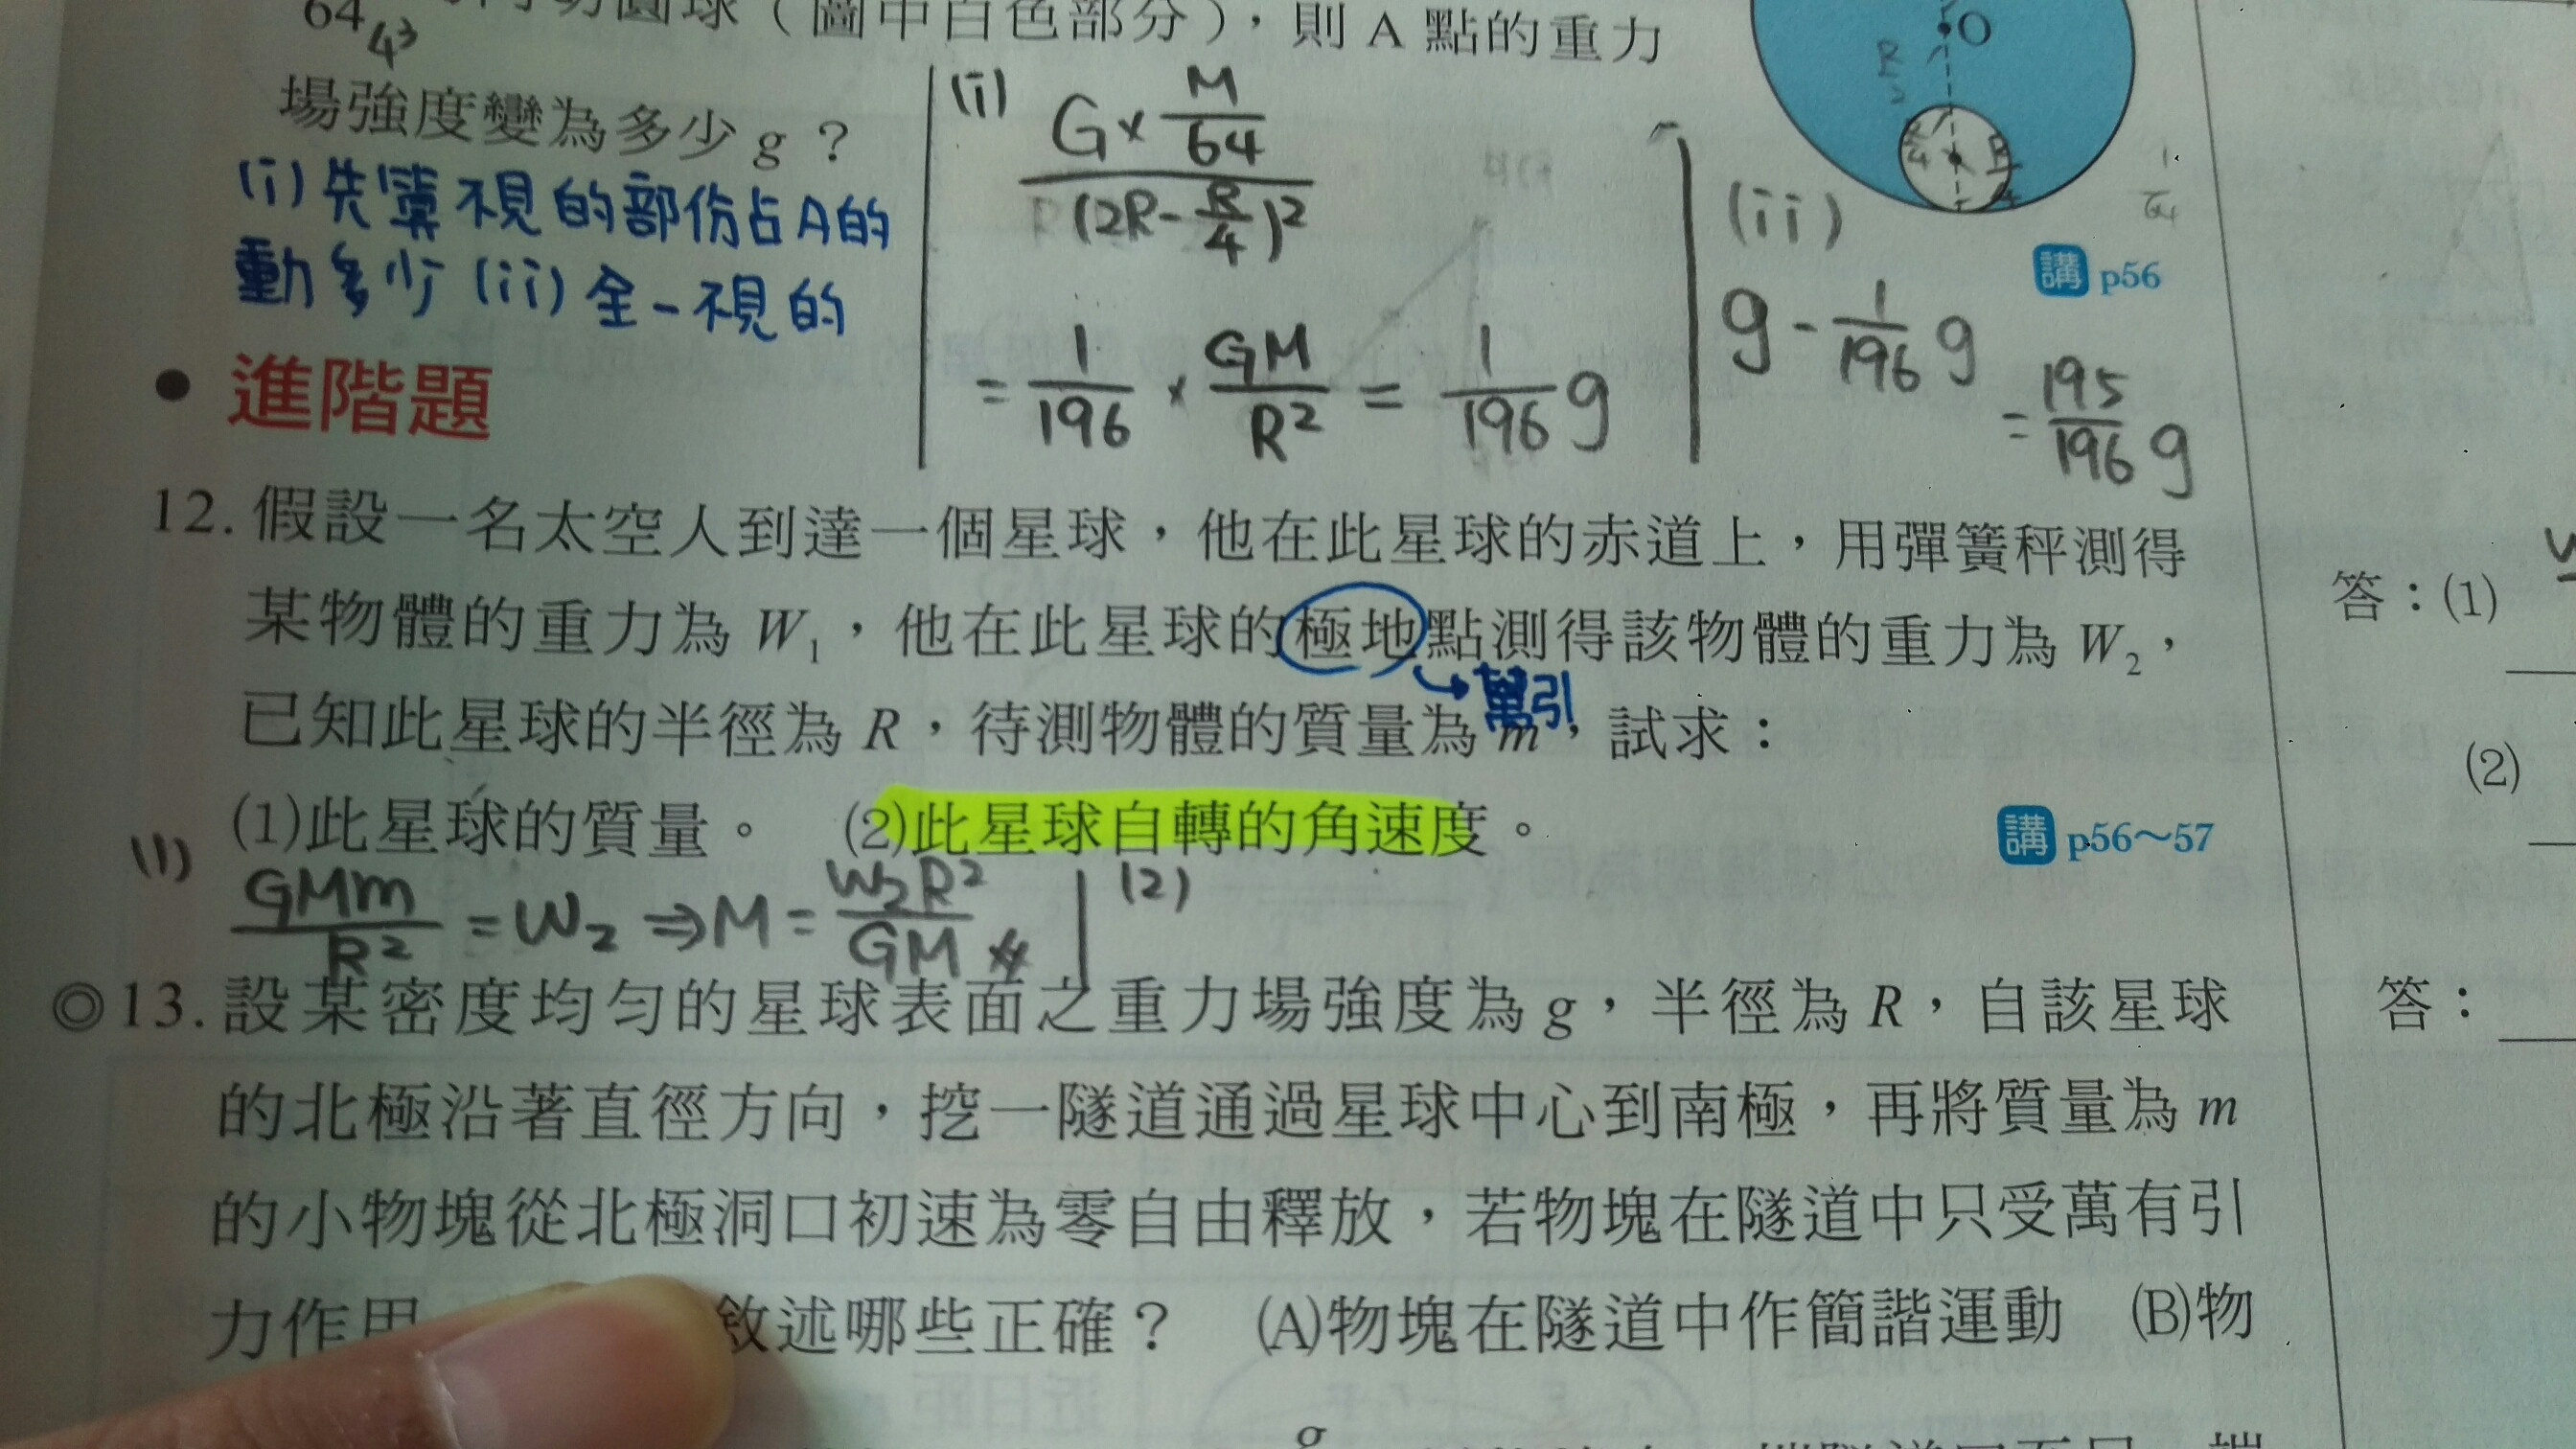 64 4³
圓球（圖中白色部分），則 A 點的重力
場強度變為多少 g？
O
(i) 先算不見的部份占A的
動多少 (ii) 全-不見的
(i) G×M/64 / (2R-R/4)²
= 1/196 × GM/R² = 1/196 g
(ii)
g - 1/196 g
= 195/196 g
1/64
講 p56
• 進階題
12. 假設一名太空人到達一個星球，他在此星球的赤道上，用彈簧秤測得
某物體的重力為 W₁，他在此星球的極地點測得該物體的重力為 W₂，
→萬引
已知此星球的半徑為 R，待測物體的質量為 m，試求：
(1)此星球的質量。 (2)此星球自轉的角速度。
講 p56～57
(1) GMm/R² = W₂ ⇒ M = W₂R²/GM
(2)
答：(1)
(2)
◎13. 設某密度均勻的星球表面之重力場強度為 g，半徑為 R，自該星球
的北極沿著直徑方向，挖一隧道通過星球中心到南極，再將質量為 m
的小物塊從北極洞口初速為零自由釋放，若物塊在隧道中只受萬有引
力作用 敘述哪些正確？ (A)物塊在隧道中作簡諧運動 (B)物
答：
g